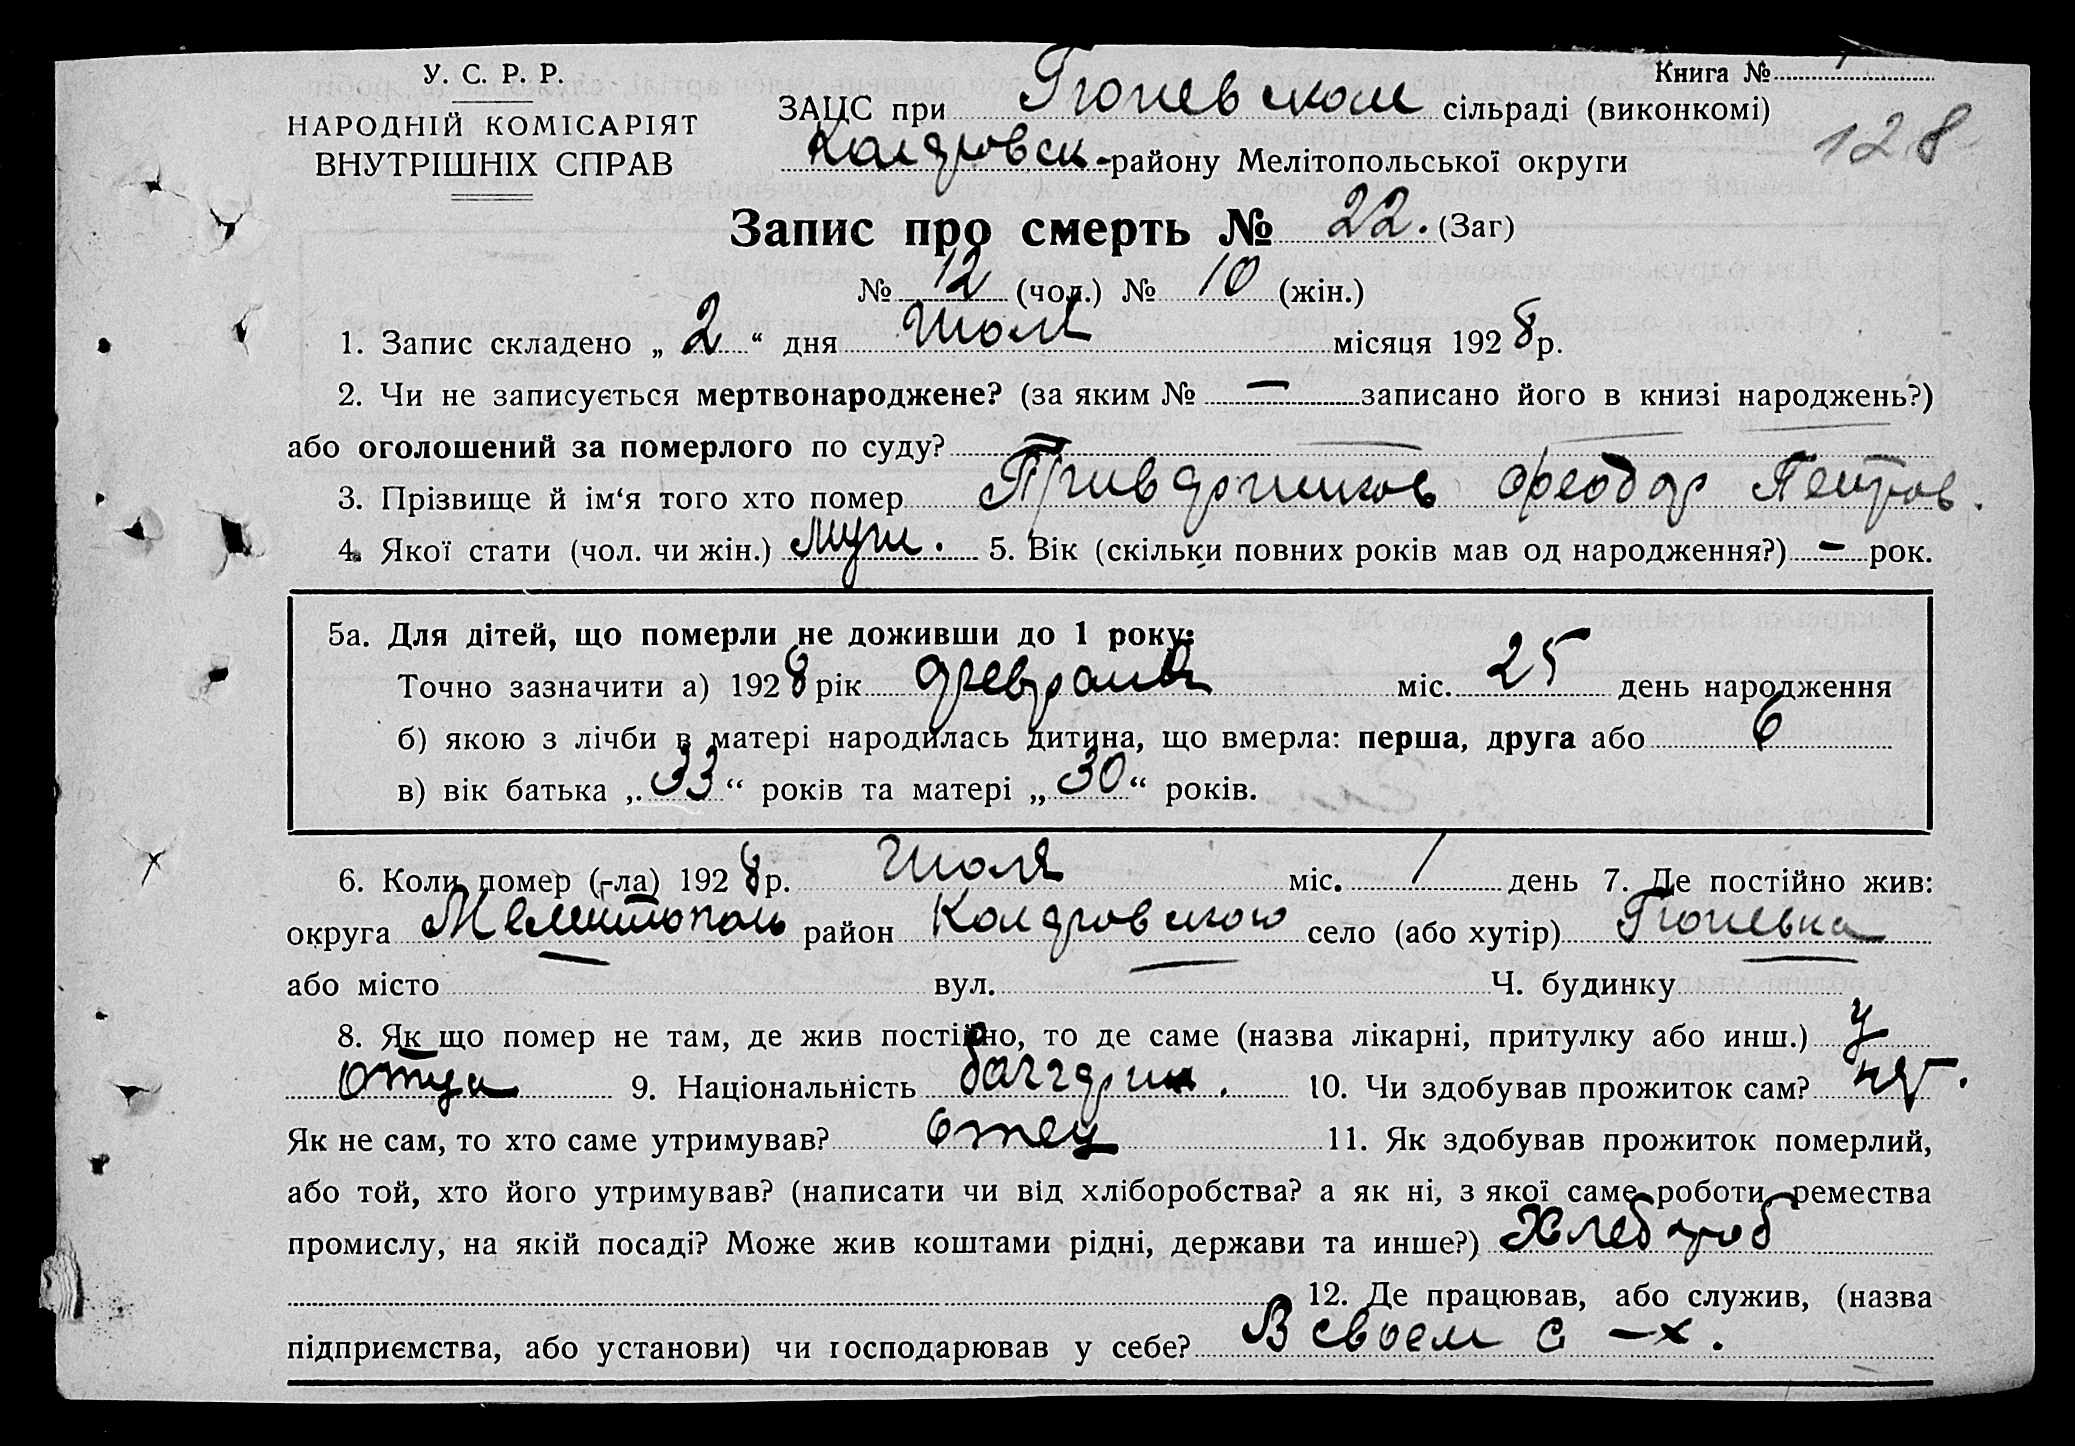 У. С. Р. Р.
НАРОДНІЙ КОМІСАРІЯТ
ВНУТРІШНІХ СПРАВ
Книга №
ЗАЦС при Гюневском сільраді (виконкомі)
128
районy Мелітопольської округи
Запис про смерть № 22. (Заг)
№ 12 (чол.) № 10 (жін.)
1. Запис складено „ 2 “ дня Июля місяця 1928 р.
2. Чи не записується мертвонароджене? (за яким № — записано його в книзі народжень?)
або оголошений за померлого по суду? —
3. Прізвище й ім‘я того хто помер Феодор Петров.
4. Якої стати (чол. чи жін.) муж. 5. Вік (скільки повних років мав од народження?) — рок.
5а. Для дітей, що померли не доживши до 1 року:
Точно зазначити а) 1928 рік февраля міс. 25 день народження
б) якою з лічби в матері народилась дитина, що вмерла: перша, друга або 6
в) вік батька „ 33 “ років та матері „ 30 “ років.
6. Коли помер (-ла) 1928 р. Июля міс. 1 день 7. Де постійно жив:
округа Мелитополь район село (або хутір) Гюневка
або місто — вул. — Ч. будинку —
8. Як що помер не там, де жив постійно, то де саме (назва лікарні, притулку або инш.) у
отца 9. Національність болгарин. 10. Чи здобував прожиток сам? нет.
Як не сам, то хто саме утримував? отец 11. Як здобував прожиток померлий,
або той, хто його утримував? (написати чи від хліборобства? а як ні, з якої саме роботи, ремества
промислу, на якій посаді? Може жив коштами рідні, держави та инше?) Хлебороб
12. Де працював, або служив, (назва
підприємства, або установи) чи господарював у себе? В своем с-х.